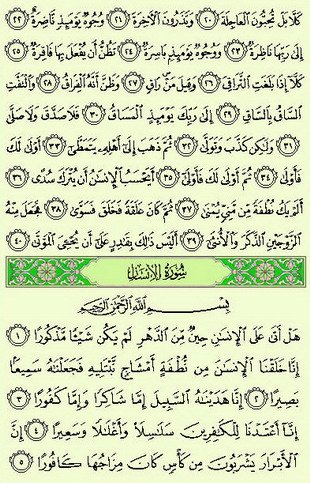 كَلَّا بَلْ تُحِبُّونَ ٱلْعَاجِلَةَ ٢٠ وَتَذَرُونَ ٱلْءَاخِرَةَ ٢١ وُجُوهٌ يَوْمَئِذٍ نَّاضِرَةٌ ٢٢
إِلَىٰ رَبِّهَا نَاظِرَةٌ ٢٣ وَوُجُوهٌ يَوْمَئِذٍۭ بَاسِرَةٌ ٢٤ تَظُنُّ أَن يُفْعَلَ بِهَا فَاقِرَةٌ ٢٥
كَلَّآ إِذَا بَلَغَتِ ٱلتَّرَاقِىَ ٢٦ وَقِيلَ مَنْ رَاقٍ ٢٧ وَظَنَّ أَنَّهُ ٱلْفِرَاقُ ٢٨ وَٱلْتَفَّتِ
ٱلسَّاقُ بِٱلسَّاقِ ٢٩ إِلَىٰ رَبِّكَ يَوْمَئِذٍ ٱلْمَسَاقُ ٣٠ فَلَا صَدَّقَ وَلَا صَلَّىٰ
٣١ وَلَٰكِن كَذَّبَ وَتَوَلَّىٰ ٣٢ ثُمَّ ذَهَبَ إِلَىٰٓ أَهْلِهِۦ يَتَمَطَّىٰٓ ٣٣ أَوْلَىٰ لَكَ
فَأَوْلَىٰ ٣٤ ثُمَّ أَوْلَىٰ لَكَ فَأَوْلَىٰٓ ٣٥ أَيَحْسَبُ ٱلْإِنسَٰنُ أَن يُتْرَكَ سُدًى ٣٦
أَلَمْ يَكُ نُطْفَةً مِّن مَّنِىٍّ يُمْنَىٰ ٣٧ ثُمَّ كَانَ عَلَقَةً فَخَلَقَ فَسَوَّىٰ ٣٨ فَجَعَلَ مِنْهُ
ٱلزَّوْجَيْنِ ٱلذَّكَرَ وَٱلْأُنثَىٰٓ ٣٩ أَلَيْسَ ذَٰلِكَ بِقَٰدِرٍ عَلَىٰٓ أَن يُحْۦِىَ ٱلْمَوْتَىٰ ٤٠
سُورَةُ الإِنسَانِ
بِسْمِ ٱللَّهِ ٱلرَّحْمَٰنِ ٱلرَّحِيمِ
هَلْ أَتَىٰ عَلَى ٱلْإِنسَٰنِ حِينٌ مِّنَ ٱلدَّهْرِ لَمْ يَكُن شَيْـًٔا مَّذْكُورًا ١
إِنَّا خَلَقْنَا ٱلْإِنسَٰنَ مِن نُّطْفَةٍ أَمْشَاجٍ نَّبْتَلِيهِ فَجَعَلْنَٰهُ سَمِيعًۢا
بَصِيرًا ٢ إِنَّا هَدَيْنَٰهُ ٱلسَّبِيلَ إِمَّا شَاكِرًا وَإِمَّا كَفُورًا ٣
إِنَّآ أَعْتَدْنَا لِلْكَٰفِرِينَ سَلَٰسِلَا۟ وَأَغْلَٰلًا وَسَعِيرًا ٤ إِنَّ
ٱلْأَبْرَارَ يَشْرَبُونَ مِن كَأْسٍ كَانَ مِزَاجُهَا كَافُورًا ٥